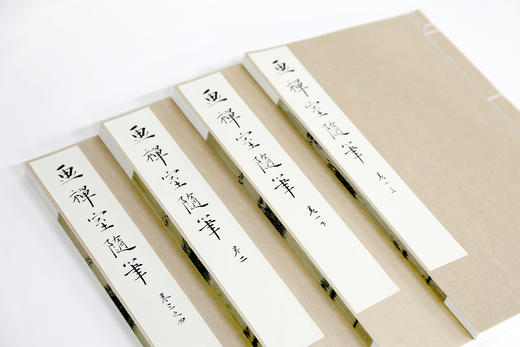 画禪室隨筆 卷一上
画禪室隨筆 卷一下
画禪室隨筆 卷二
画禪室隨筆 卷三之四